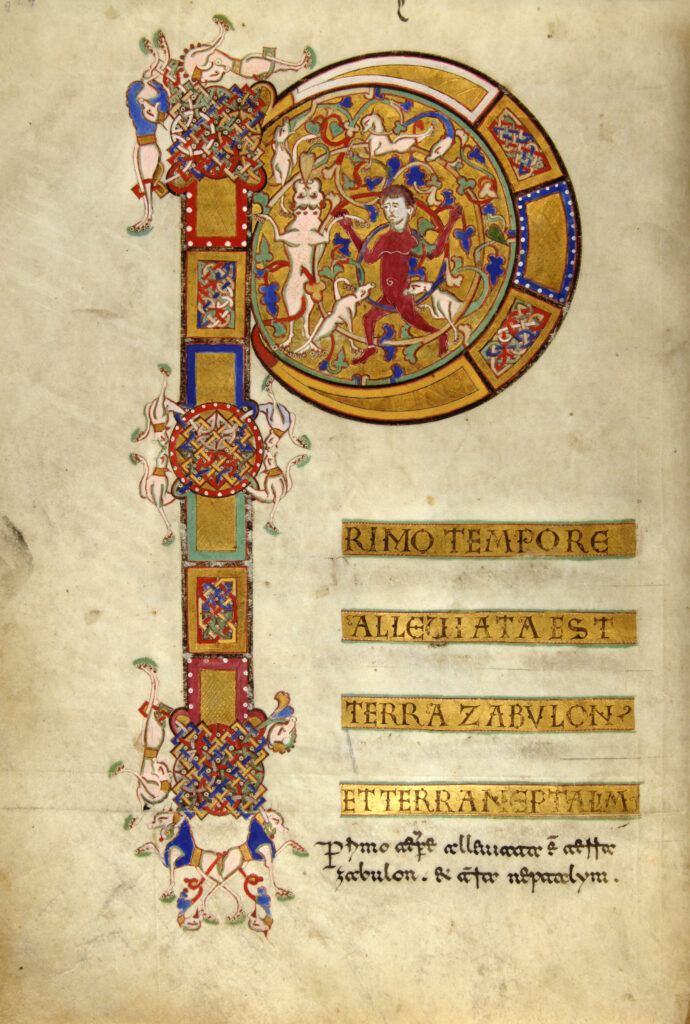 PRIMO TEMPORE
ALLEVIATA EST
TERRA ZABVLON
ET TERRA NEPTALIM
Primo alleuiata ē terra
zabulon. & neptalym.